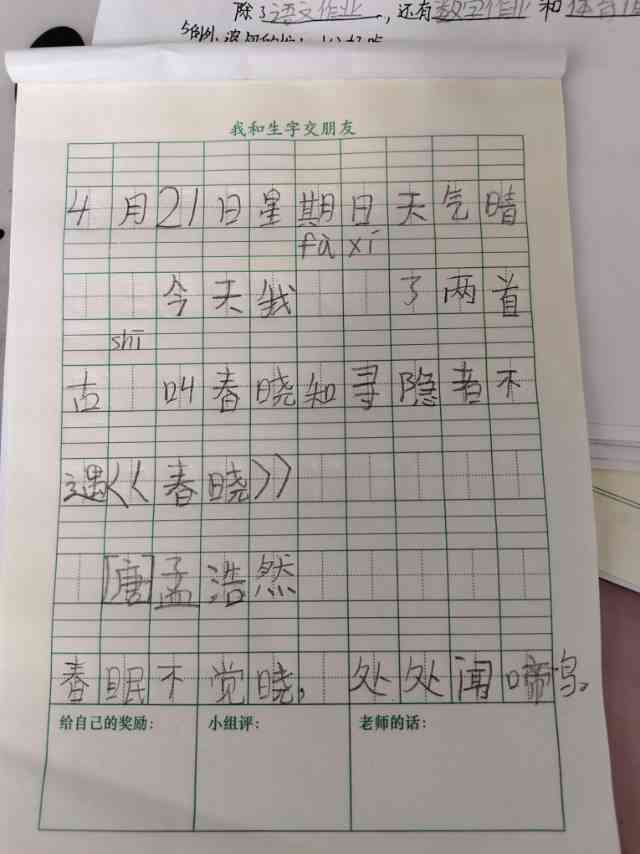 除了语文作业,还有数学作业和体育作
我和生字交朋友
4月21日星期日天气晴
fà xí
今天我 了两首
shī
古 叫春晓知寻隐者不
遇《春晓》
[唐]孟浩然
春眠不觉晓,处处闻啼鸟。
给自己的奖励: 小组评: 老师的话: